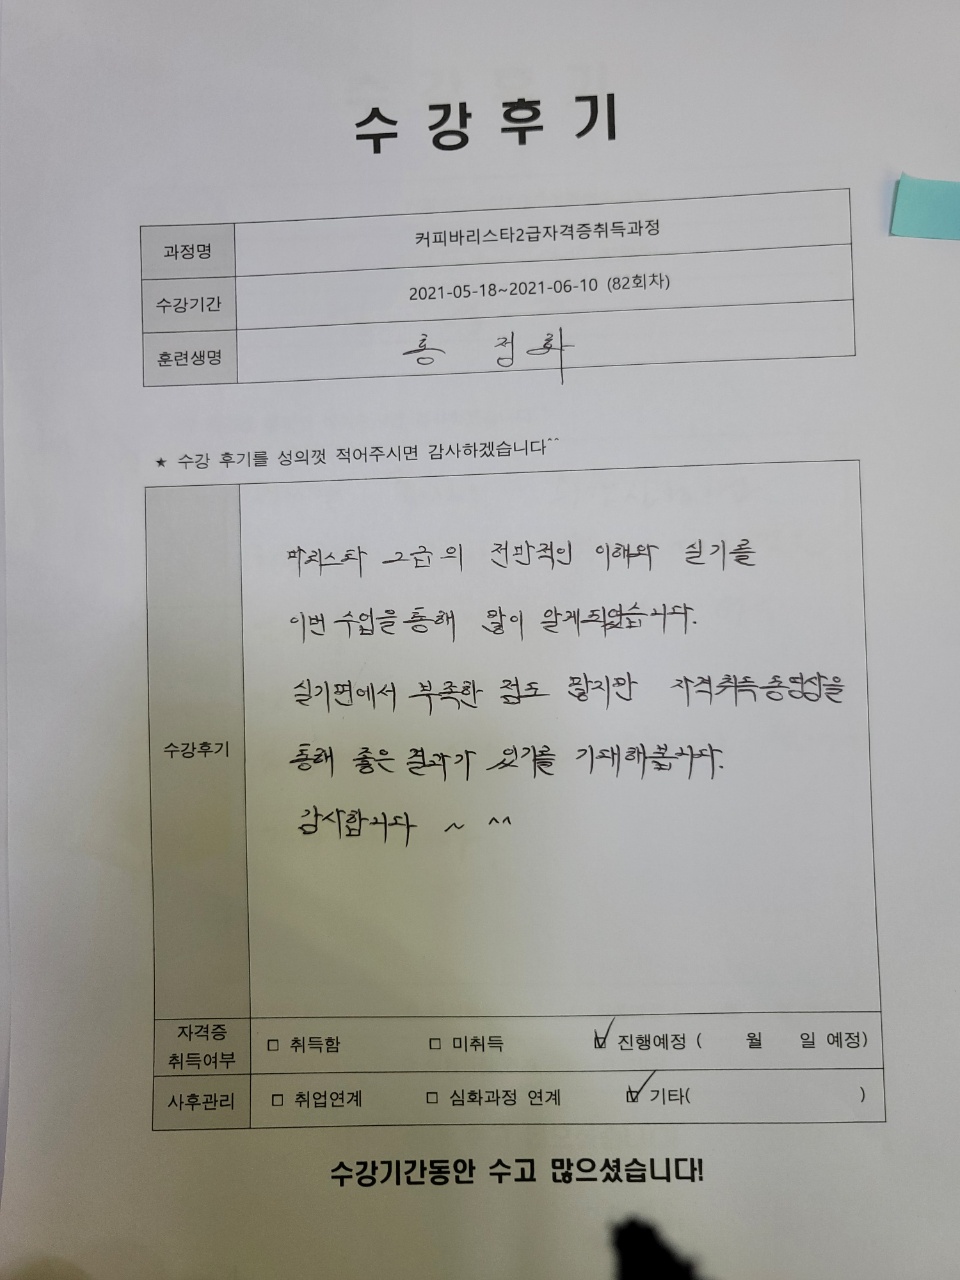 수강후기
과정명 커피바리스타2급자격증취득과정
수강기간 2021-05-18~2021-06-10 (82회차)
훈련생명 홍 정화
★ 수강 후기를 성의껏 적어주시면 감사하겠습니다^^
바리스타 2급의 전반적인 이해와 실기를
이번 수업을 통해 많이 알게되었습니다.
실기면에서 부족한 점도 많지만 자격취득동영상을
수강후기
통해 좋은 결과가 있기를 기대해봅니다.
감사합니다 ~ ^^
자격증
취득여부 □ 취득함 □ 미취득 ☑ 진행예정 ( 월 일 예정)
사후관리 □ 취업연계 □ 심화과정 연계 ☑ 기타( )
수강기간동안 수고 많으셨습니다!